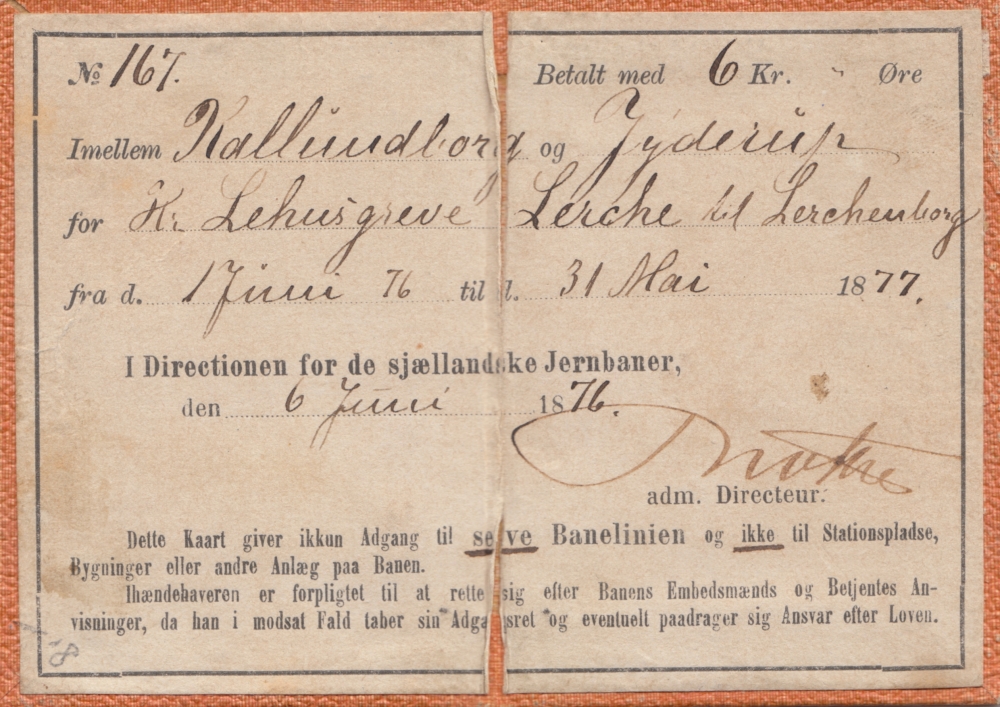 № 167. Betalt med 6 Kr. " Øre
Imellem Kallundborg og Jyderup
for Hr. Lehnsgreve Lerche til Lerchenborg
fra d. 1 Juni 76 til d. 31 Mai 1877.
I Directionen for de sjællandske Jernbaner,
den 6 Juni 1876.
adm. Directeur.
Dette Kaart giver ikkun Adgang til selve Banelinien og ikke til Stationspladse,
Bygninger eller andre Anlæg paa Banen.
Ihændehaveren er forpligtet til at rette sig efter Banens Embedsmænds og Betjentes An-
visninger, da han i modsat Fald taber sin Adgangsret og eventuelt paadrager sig Ansvar efter Loven.